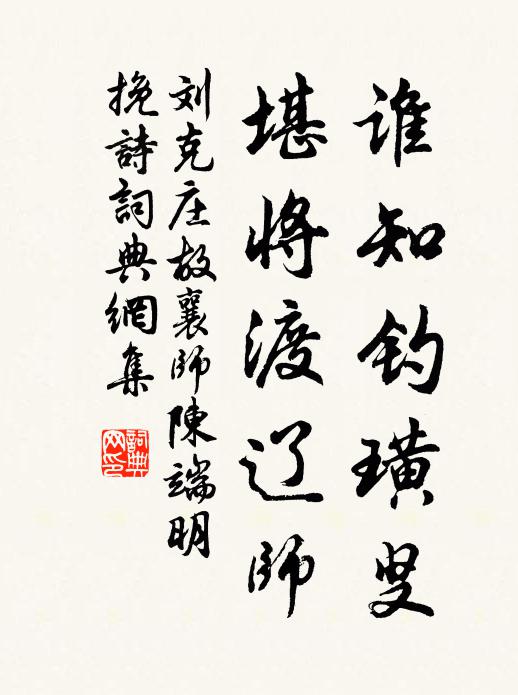 谁知钓璜叟
堪将渡辽师
刘克庄故襄師陳端明
挽詩詞典網集
詞典
网印